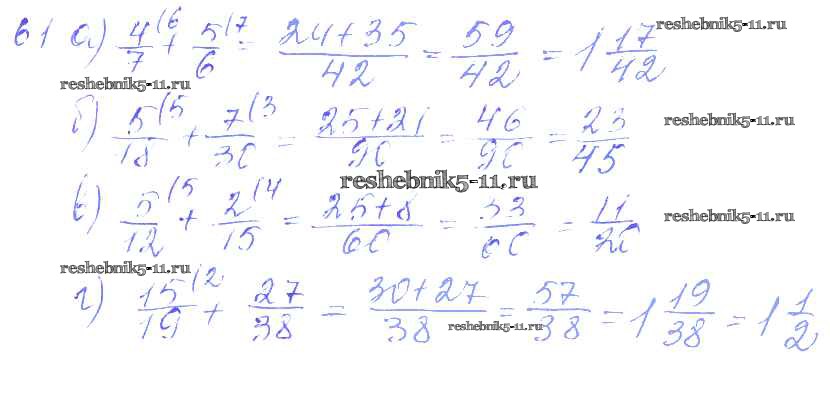 61 а) 4/7 (6 + 5/6 (7 = 24+35/42 = 59/42 = 1 17/42
reshebnik5-11.ru
reshebnik5-11.ru
б) 5/18 (5 + 7/30 (3 = 25+21/90 = 46/90 = 23/45
reshebnik5-11.ru
reshebnik5-11.ru
в) 5/12 (5 + 2/15 (4 = 25+8/60 = 33/60 = 11/20
reshebnik5-11.ru
reshebnik5-11.ru
г) 15/19 (2 + 27/38 = 30+27/38 = 57/38 = 1 19/38 = 1 1/2
reshebnik5-11.ru